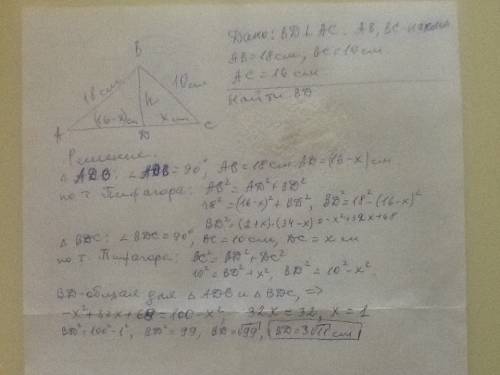 B
18 см
10 см
h
(16-x)см
x см
A
D
C
Дано: BD ⊥ AC. AB, BC -
AB = 18 см, BC = 10 см
AC = 16 см
Найти: BD
Решение.
△ ADB: ∠ADB = 90°, AB = 18 см. AD = (16-x) см
по т. Пифагора: AB² = AD² + BD²
18² = (16-x)² + BD², BD² = 18² - (16-x)²
BD² = (2+x)·(34-x) = -x²+32x+68
△ BDC: ∠BDC = 90°, BC = 10 см, DC = x см
по т. Пифагора: BC² = BD² + DC²
10² = BD² + x², BD² = 10² - x².
BD - общая для △ ADB и △ BDC, =>
-x²+32x+68 = 100-x², 32x = 32, x = 1
BD² = 100-1², BD² = 99, BD = √99, BD = 3√11 см